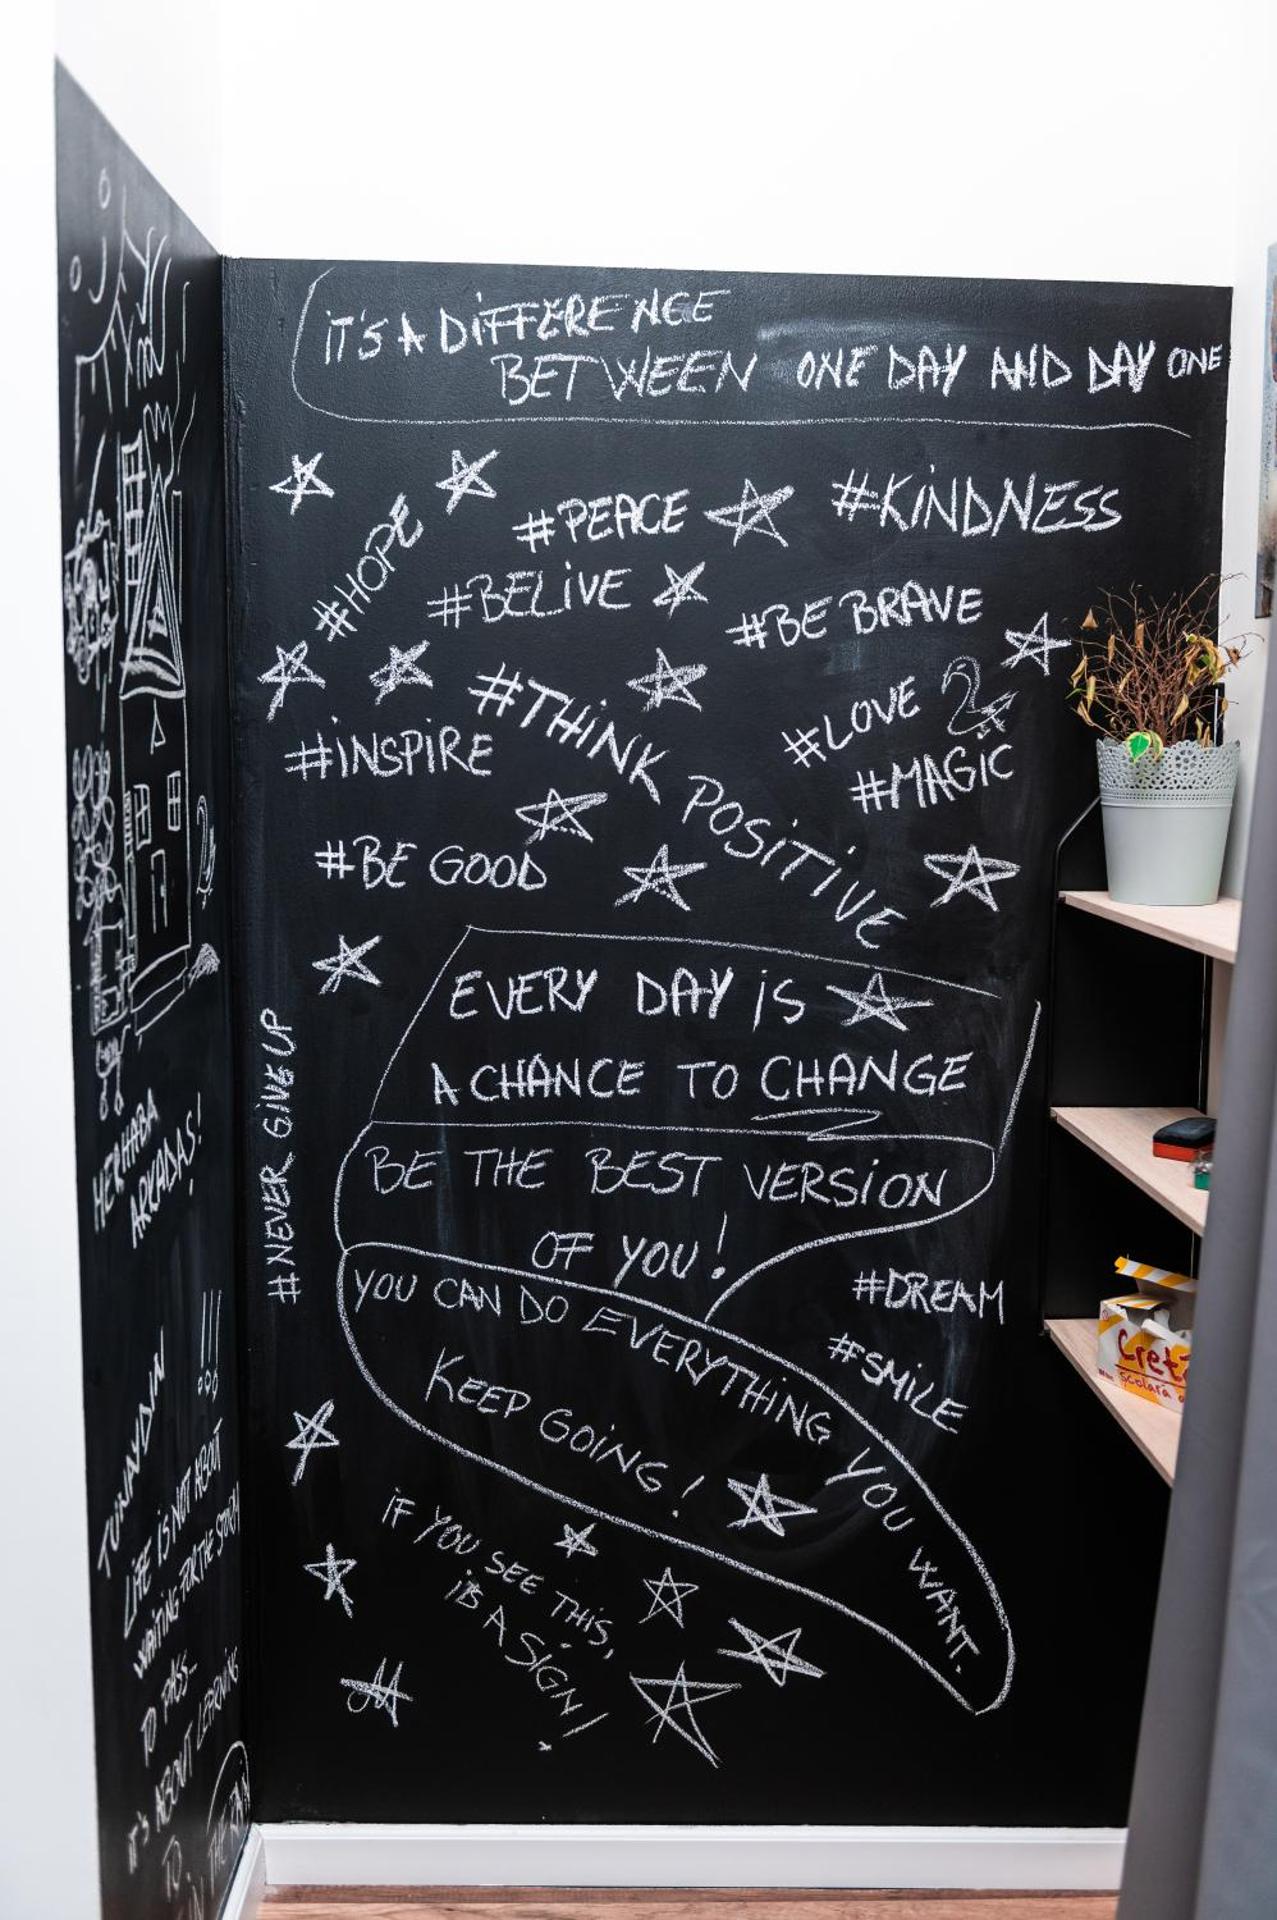 IT'S A DIFFERENCE
BETWEEN ONE DAY AND DAY ONE
#HOPE
#PEACE
#KINDNESS
#BELIVE
#BE BRAVE
#THINK POSITIVE
#LOVE
#INSPIRE
#MAGIC
#BE GOOD
EVERY DAY IS
A CHANCE TO CHANGE
#NEVER GIVE UP
BE THE BEST VERSION
OF YOU!
YOU CAN DO EVERYTHING YOU WANT.
KEEP GOING!
#DREAM
#SMILE
IF YOU SEE THIS,
IS A SIGN!
MERHABA
ARKADAS!
!!!
LIFE IS NOT ABOUT
WAITING FOR THE STORM
TO PASS-
IT'S ABOUT LEARNING
TO
THE RAIN
Cret
scolara